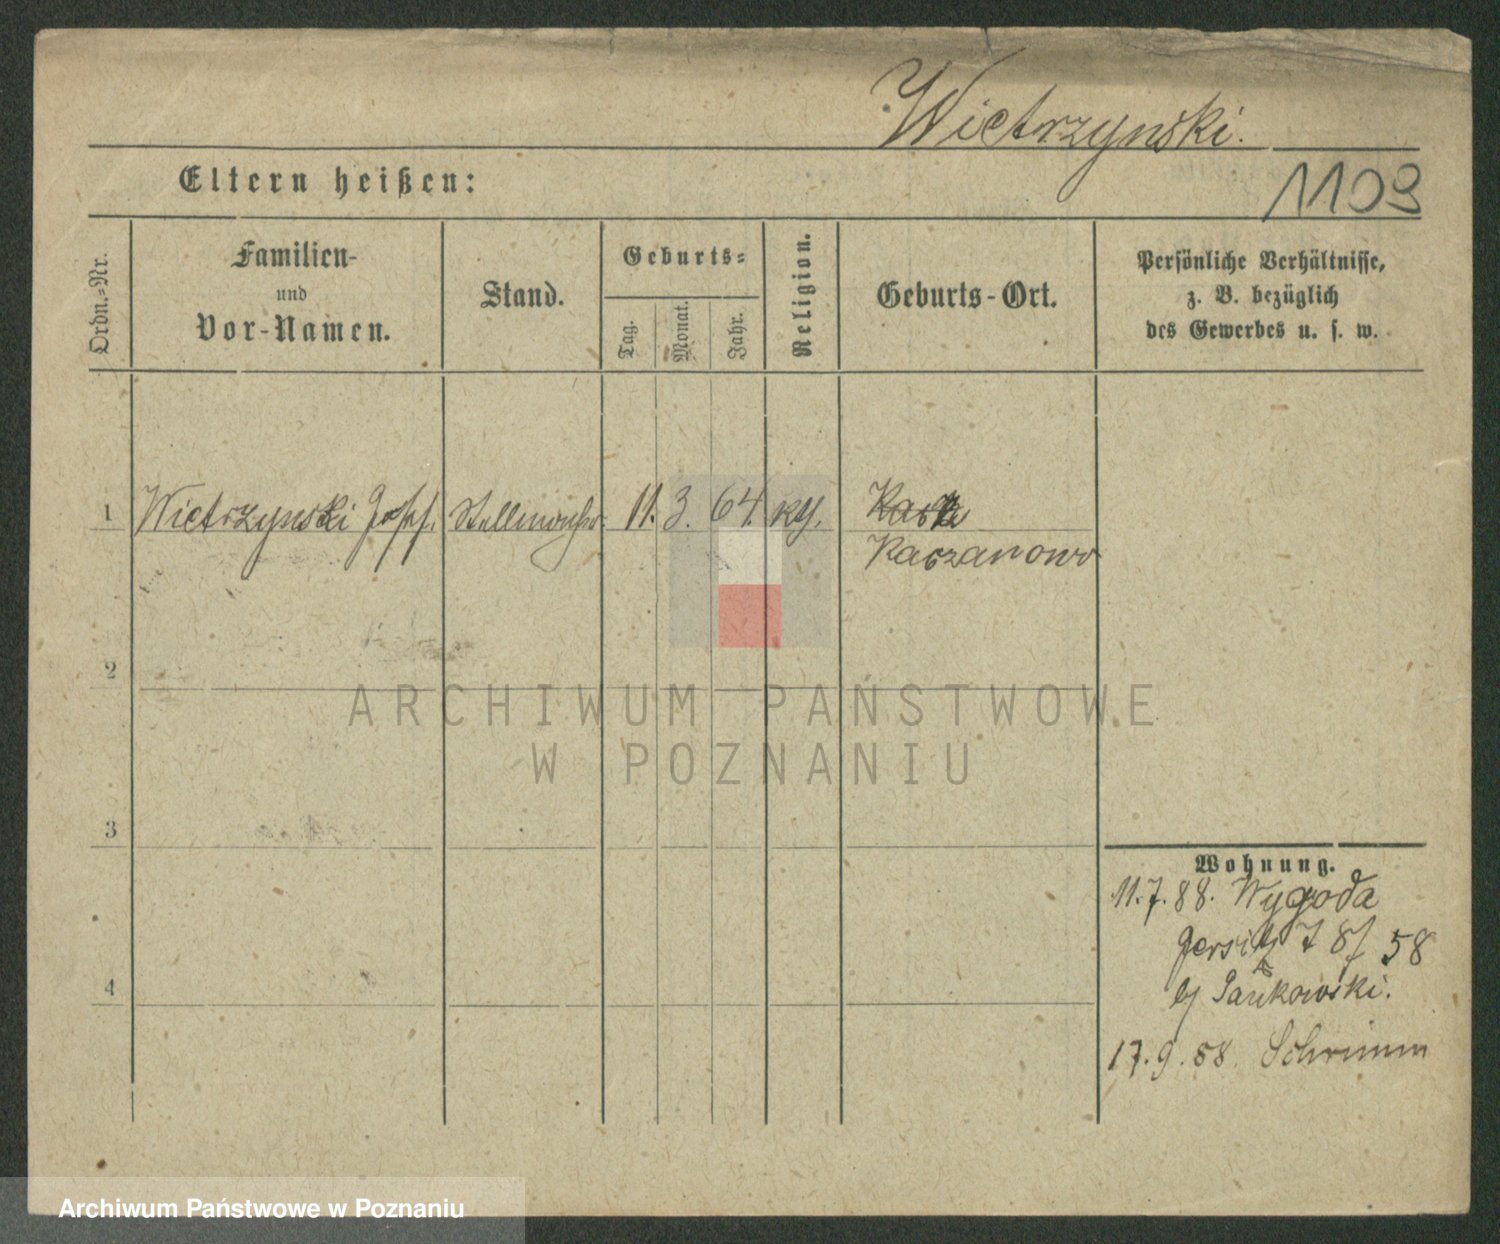 Wietrzynski.
Eltern heißen:
1109
Ordn.-Nr.
Familien-
und
Vor-Namen.
Stand.
Geburts-
Tag.
Monat.
Jahr.
Religion.
Geburts-Ort.
Persönliche Verhältnisse,
z. B. bezüglich
des Gewerbes u. s. w.
1 Wietrzynski Josef. Stellmacher 11. 3. 64.
Kaczanowo
2
3
4
Wohnung.
11.7.88. Wygoda
Jersitz 58
Jankowski.
17.9.88. Schrimm
ARCHIWUM PAŃSTWOWE
W POZNANIU
Archiwum Państwowe w Poznaniu